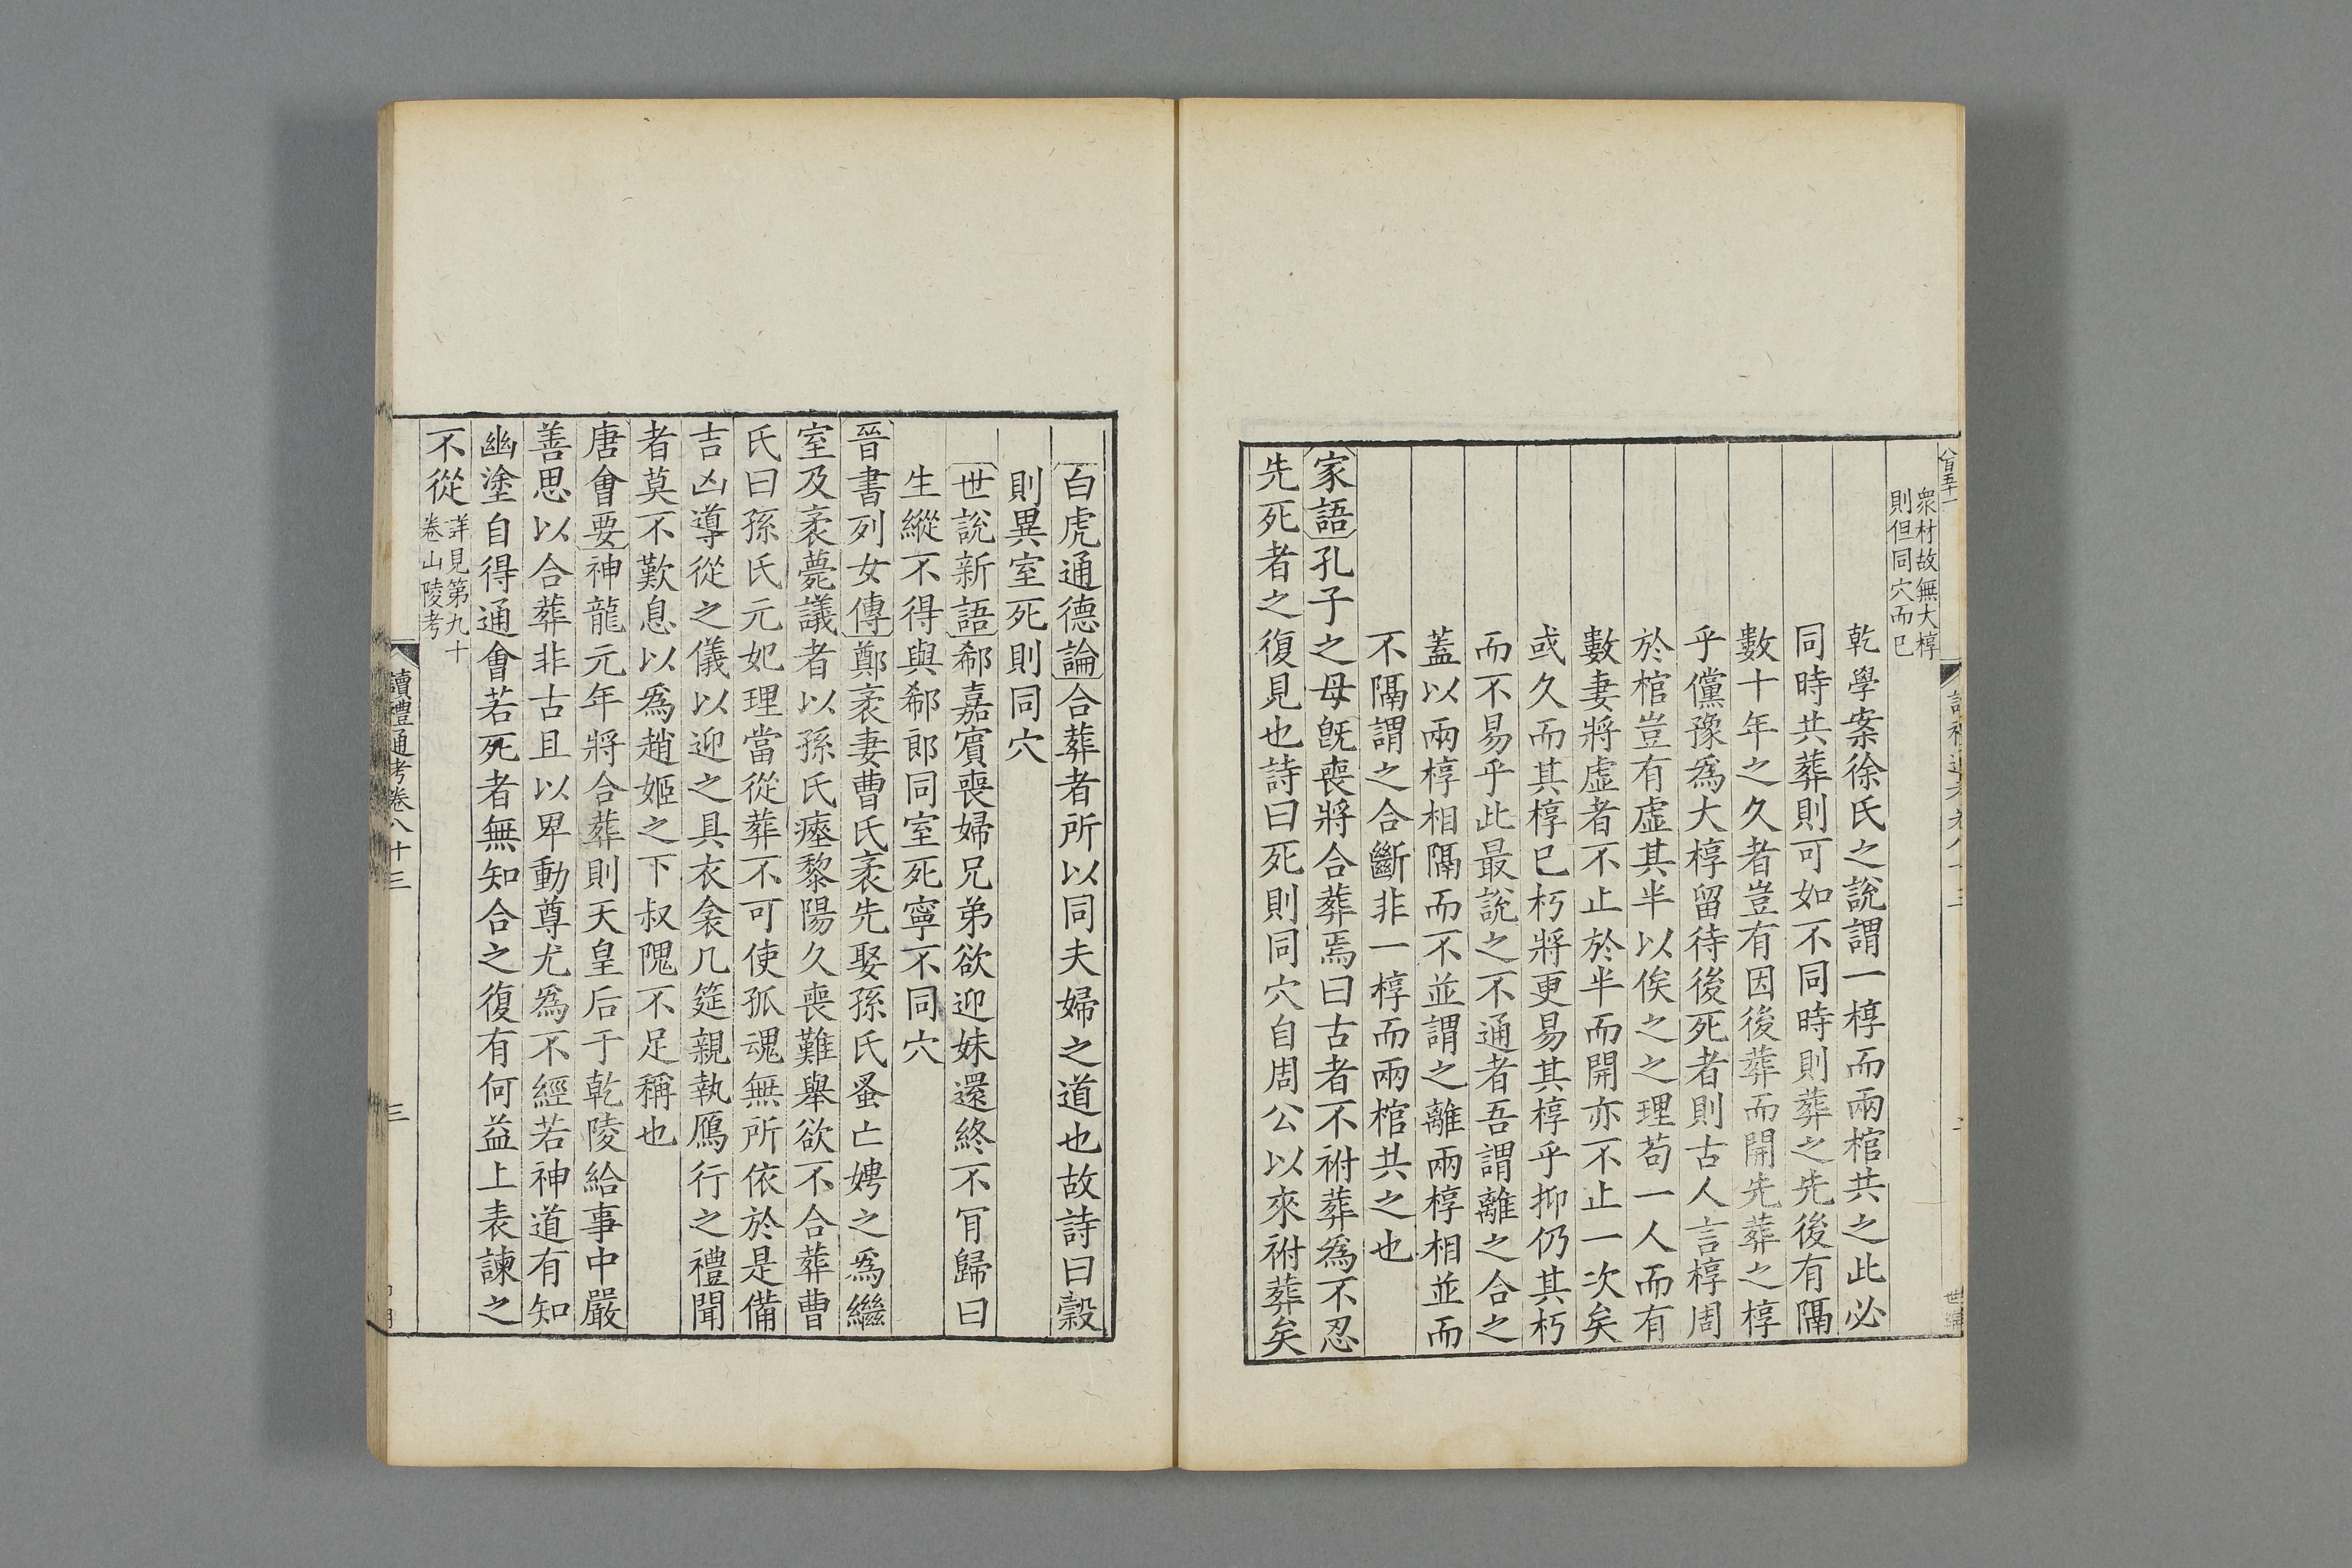 衆材故無大椁
則但同穴而已
乾學案徐氏之說謂一椁而兩棺共之此必
同時共葬則可如不同時則葬之先後有隔
數十年之久者豈有因後葬而開先葬之椁
乎儻豫爲大椁留待後死者則古人言椁周
於棺豈有虛其半以俟之之理苟一人而有
數妻將虛者不止於半而開亦不止一次矣
或久而其椁已朽將更易其椁乎抑仍其朽
而不易乎此最說之不通者吾謂離之合之
蓋以兩椁相隔而不並謂之離兩椁相並而
不隔謂之合斷非一椁而兩棺共之也
家語孔子之母旣喪將合葬焉曰古者不祔葬爲不忍
先死者之復見也詩曰死則同穴自周公以來祔葬矣
白虎通德論合葬者所以同夫婦之道也故詩曰穀
則異室死則同穴
世說新語郗嘉賓喪婦兄弟欲迎妹還終不肎歸曰
生縱不得與郗郎同室死寧不同穴
晉書列女傳鄭袤妻曹氏袤先娶孫氏蚤亡娉之爲繼
室及袤薨議者以孫氏瘞黎陽久喪難舉欲不合葬曹
氏曰孫氏元妃理當從葬不可使孤魂無所依於是備
吉凶導從之儀以迎之具衣衾几筵親執鴈行之禮聞
者莫不歎息以爲趙姬之下叔隗不足稱也
唐會要神龍元年將合葬則天皇后于乾陵給事中嚴
善思以合葬非古且以卑動尊尤爲不經若神道有知
幽塗自得通會若死者無知合之復有何益上表諫之
不從
詳見第九十
卷山陵考
讀禮通考卷八十三
三